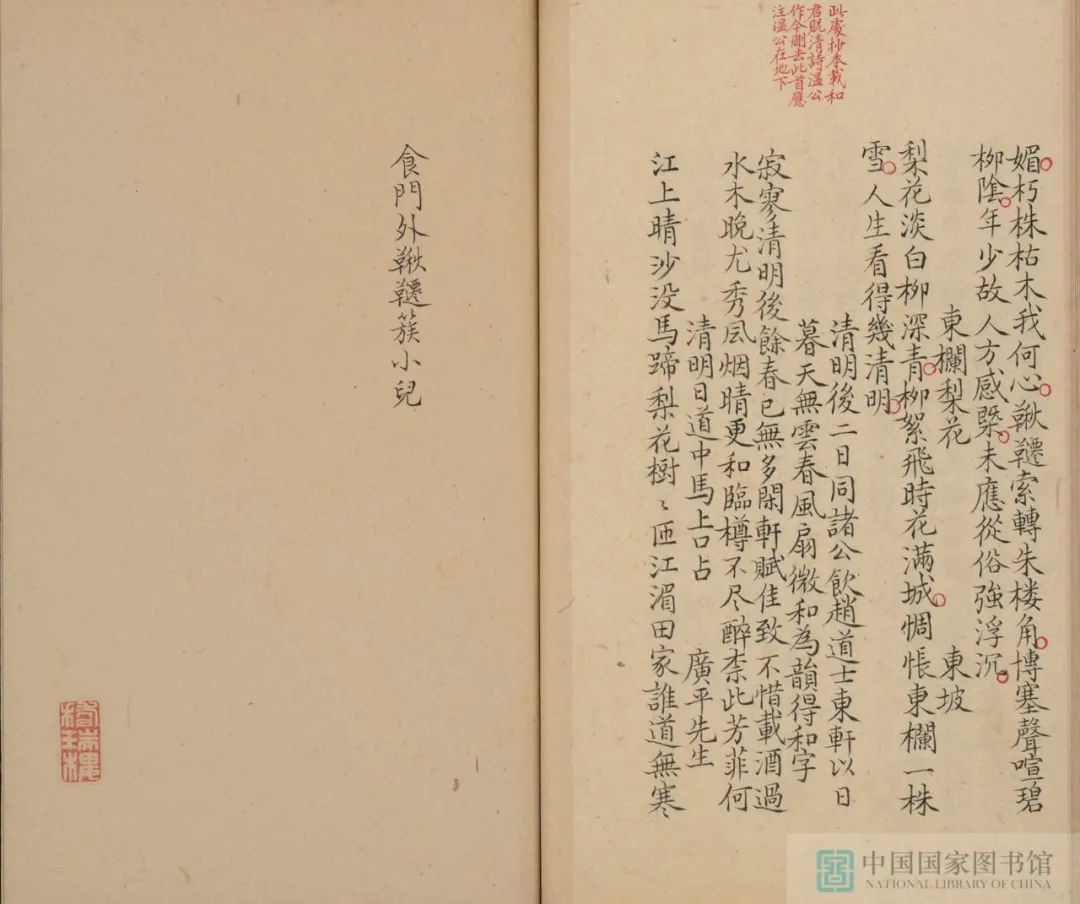 此處抄本載和
君貺清詩溫公
作今刪去此首應
注溫公在地下
媚朽株枯木我何心鞦韆索轉朱楼角博塞聲喧碧
柳陰年少故人方感槩未應從俗強浮沉
東欄梨花 東坡
梨花淡白柳深青柳絮飛時花滿城惆悵東欄一株
雪人生看得幾清明
清明後二日同諸公飲趙道士東軒以日
暮天無雲春風扇微和為韻得和字
寂寥清明後餘春已無多閑軒賦佳致不惜載酒過
水木晚尤秀凬烟晴更和臨樽不尽醉柰此芳菲何
清明日道中馬上口占 廣平先生
江上晴沙没馬蹄梨花樹〻匝江湄田家誰道無寒
食門外鞦韆簇小兒
中国国家图书馆
NATIONAL LIBRARY OF CHINA